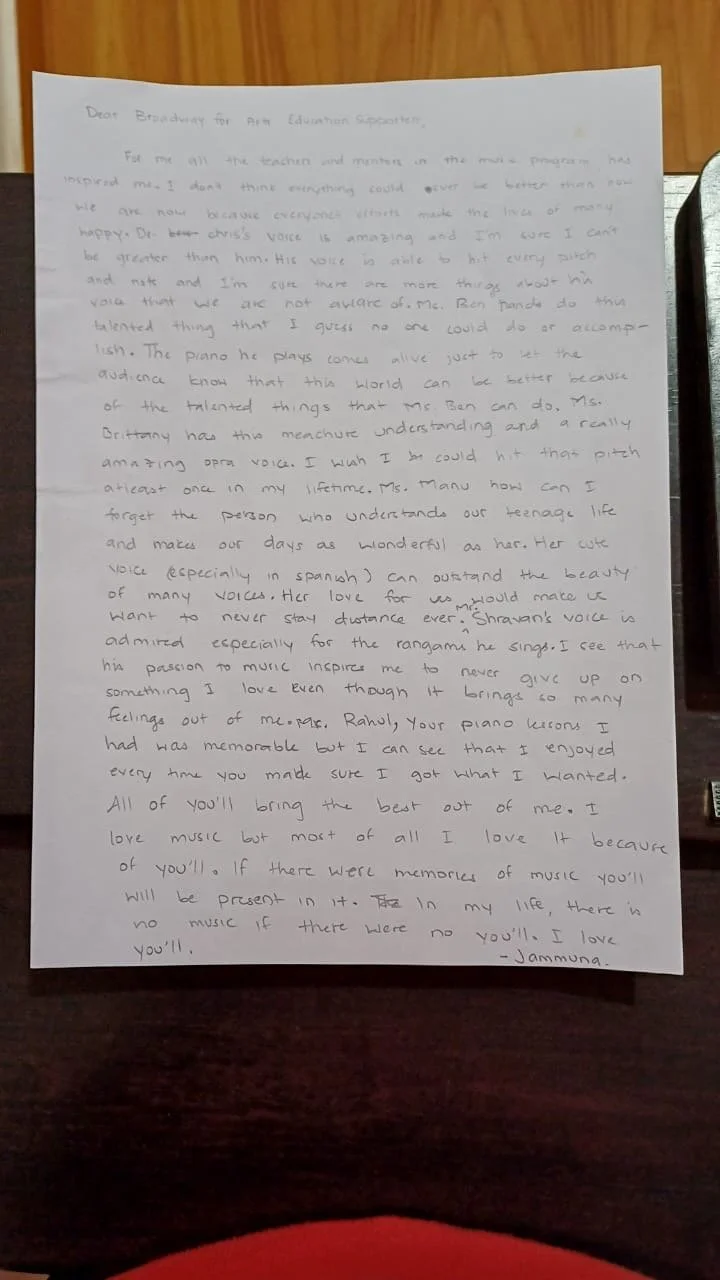 Dear Broadway for Arts Education Supporters,
For me all the teachers and mentors in the music program has
inspired me. I don't think everything could ever be better than now
we are now because everyone's efforts made the lives of many
happy. Dr. chris's voice is amazing and I'm sure I can't
be greater than him. His voice is able to hit every pitch
and note and I'm sure there are more things about his
voice that we are not aware of. Mr. Ben hands do this
talented thing that I guess no one could do or accomp-
lish. The piano he plays comes alive just to let the
audience know that this world can be better because
of the talented things that Mr. Ben can do. Ms.
Brittany has this meachure understanding and a really
amazing opra voice. I wish I could hit that pitch
atleast once in my lifetime. Ms. Manu how can I
forget the person who understands our teenage life
and makes our days as wonderful as her. Her cute
voice (especially in spanish) can outstand the beauty
of many voices. Her love for us would make us
want to never stay distance ever. Mr. Shravan's voice is
admired especially for the rangams he sings. I see that
his passion to music inspires me to never give up on
something I love Even though It brings so many
feelings out of me. Rahul, Your piano lessons I
had was memorable but I can see that I enjoyed
every time you made sure I got what I wanted.
All of you'll bring the best out of me. I
love music but most of all I love It because
of you'll. If there were memories of music you'll
will be present in it. In my life, there is
no music if there were no you'll. I love
you'll.
- Jammuna.